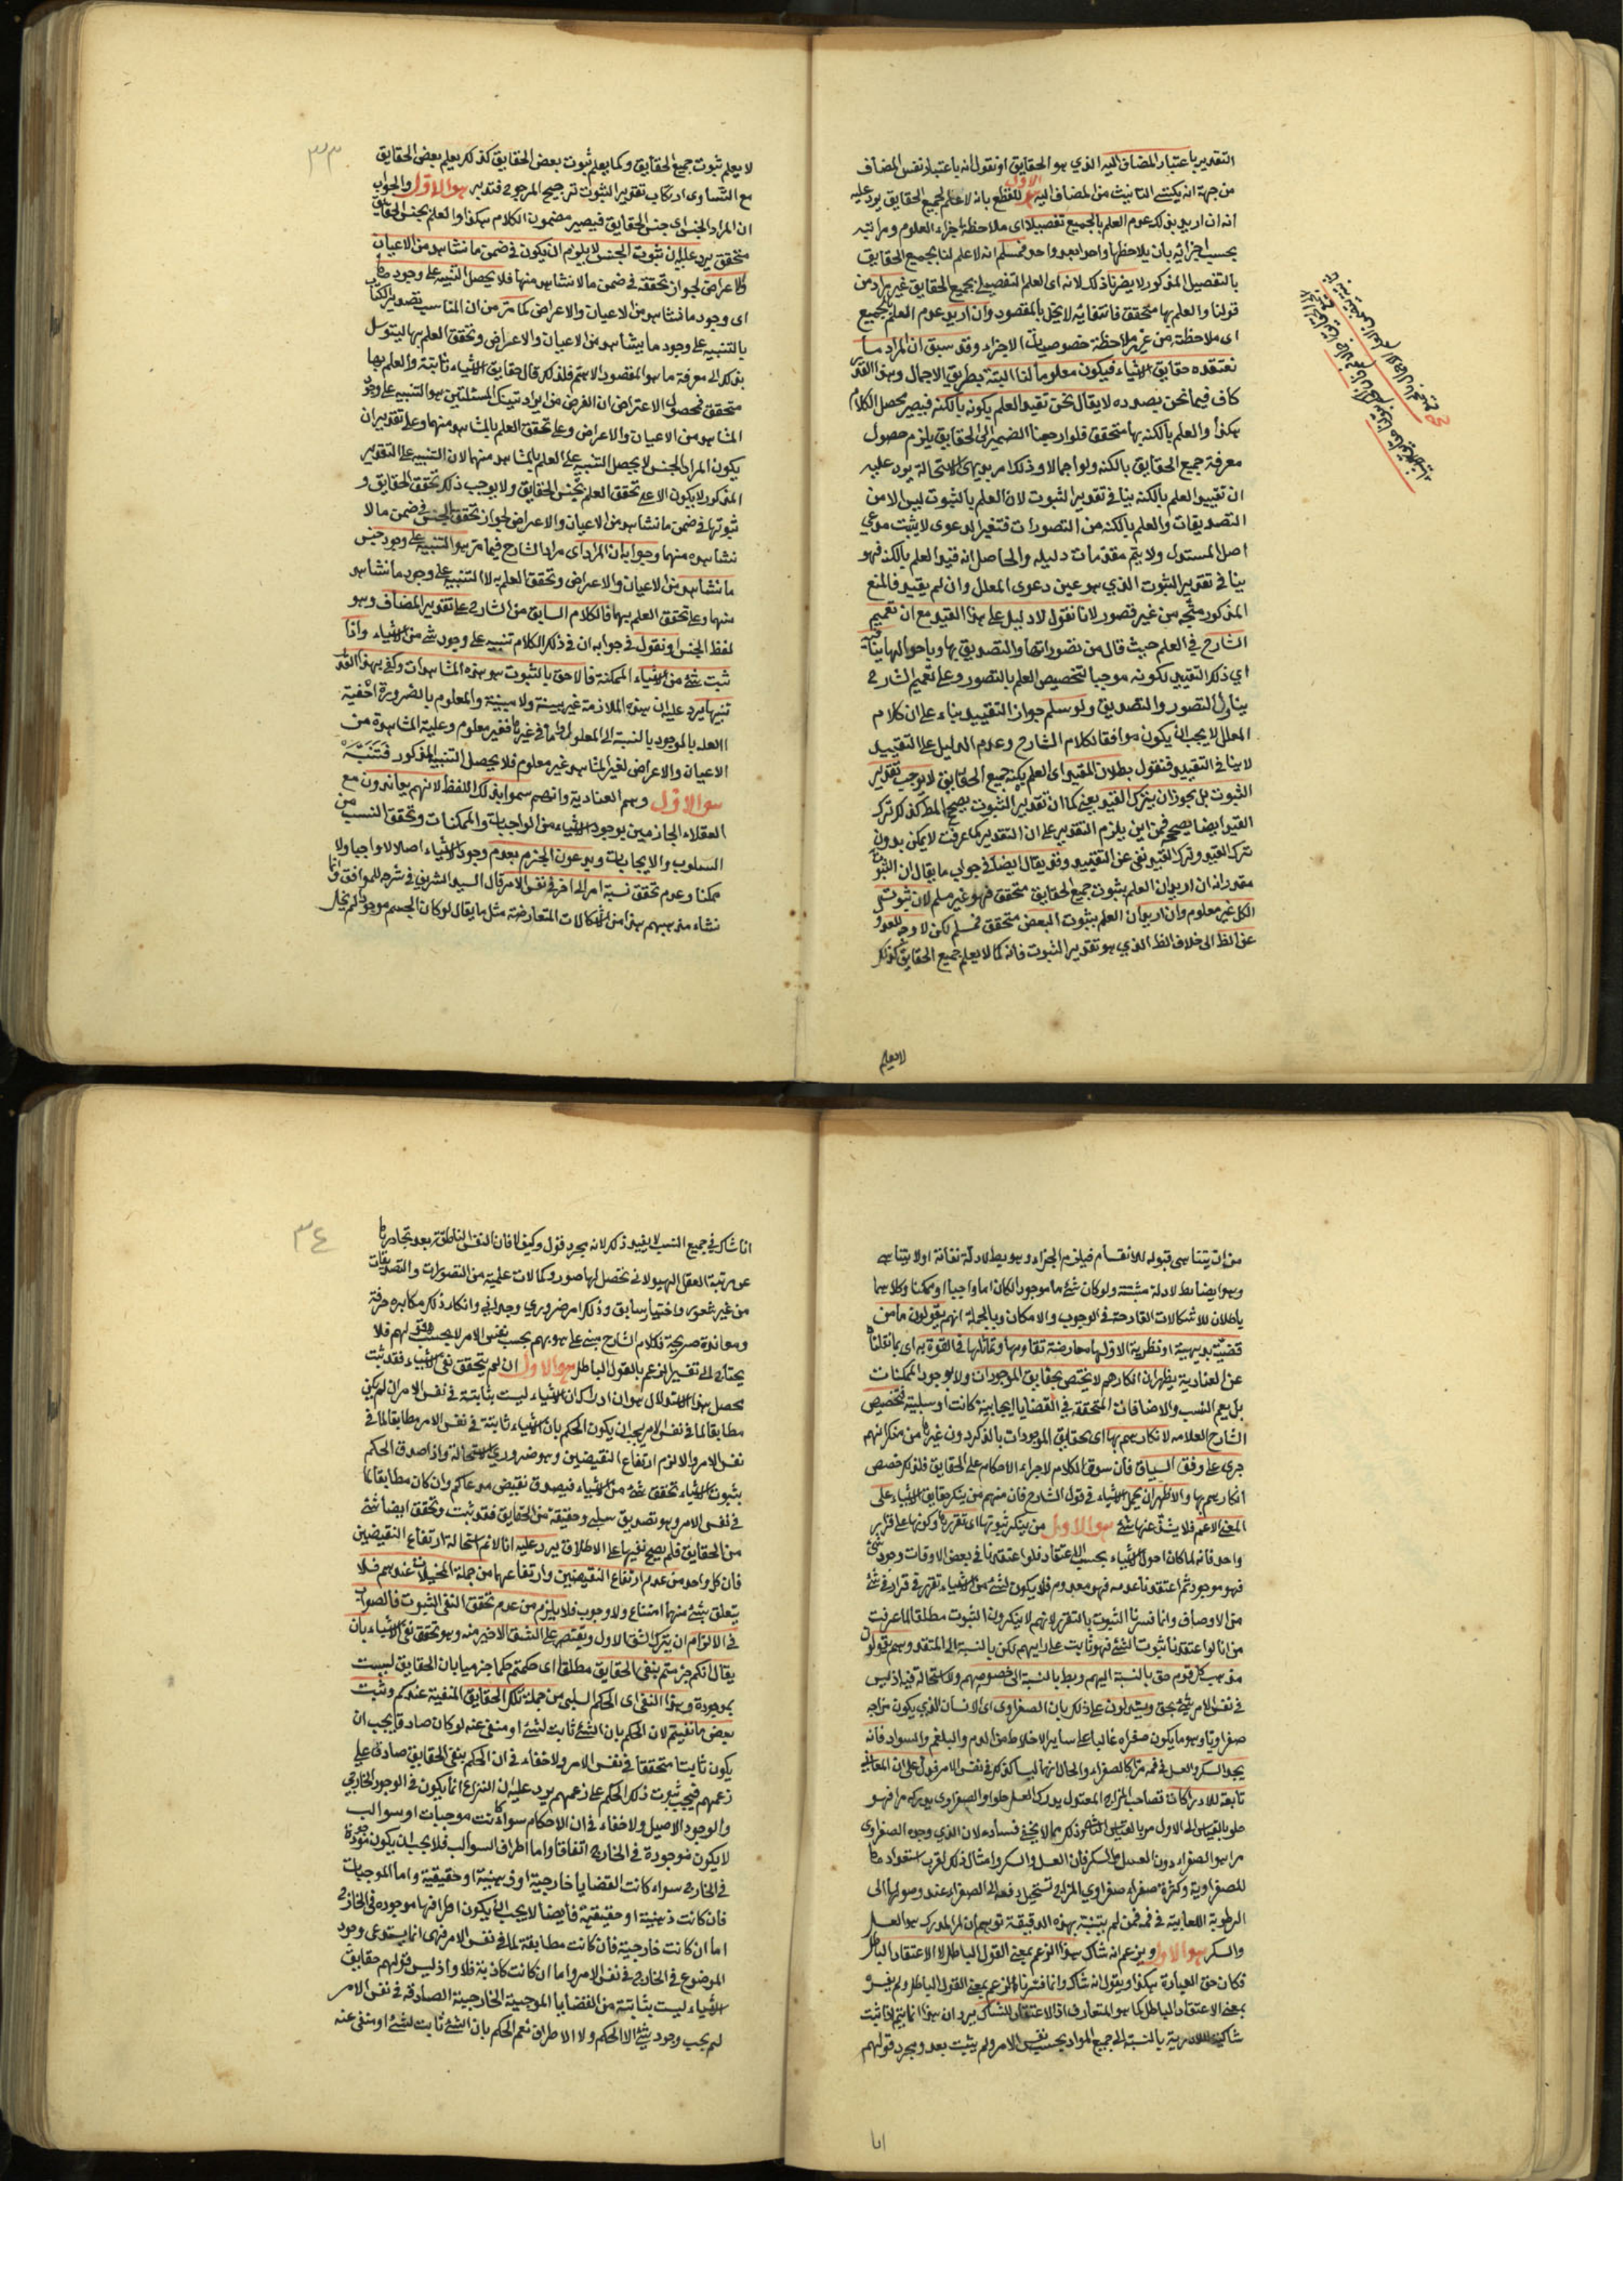 التقدير باعتبار المضاف اليه الذي هو الحقايق او نقول انه باعتبار نفس المضاف
من جهة انه يكتسي التانيث من المضاف اليه الاول للقطع بانه لا علم بجميع الحقايق يرد عليه
انه ان اريد بذلك عدم العلم بالجميع تفصيلا اى ملاحظة اجزاء العلوم ومراتبه
بحسب اجزائه بان يلاحظها واحدا بعد واحد فمسلم انه لا علم لنا بجميع الحقايق
بالتفصيل المذكور لا يضرنا ذلك لانه اى العلم التفصيلي بجميع الحقايق غير مراد من
قولنا والعلم بها متحقق فانتفائه لا يخل بالمقصود وان اريد عدم العلم بالجميع
اى ملاحظة من غير ملاحظة خصوصيات الاجزاء وقد سبق ان المراد ما
نعتقده حقايق الاشياء فيكون معلوما لنا البتة بطريق الاجمال وهذا القدر
كاف فيما نحن بصدده لا يقال نحن نقيد العلم بكونه بالكنه فيصير محصل الكلام
هكذا والعلم بالكنه بها متحقق فلو ارجعنا الضمير الى الحقايق يلزم حصول
معرفة جميع الحقايق بالكنه ولو اجمالا وذلك امر بديهى الاستحالة يرد عليه
ان تقييد العلم بالكنه ينافي تقدير الثبوت لان العلم بالثبوت ليس الا من
التصديقات والعلم بالكنه من التصورات فتغير الدعوى لا يثبت مدعي
اصل المستدل ولا يتم مقدمات دليله والحاصل انه قيد العلم بالكنه فهو
ينافي تقدير الثبوت الذي هو عين دعوى المعلل وان لم يقيد فالمنع
المذكور متجه من غير قصور لانا نقول لا دليل على هذا القيد مع ان تعميم
الشارح في العلم حيث قال من تصوراتها والتصديق بها وباحوالها ينافيه
اي ذلك التقييد لكونه موجبا لتخصيص العلم بالتصور وعلى تعميم الشارح
يتناول التصور والتصديق ولو سلم جواز التقييد بناء على ان كلام
المعلل لا يجب ان يكون موافقا لكلام الشارح وعدم الدليل على التقييد
لا ينافي التقييد فنقول بطلان المقيد اى العلم بكنه جميع الحقايق لا يوجب تقدير
الثبوت بل يجوز ان يترك القيد يعني كما ان تقدير الثبوت يصحح المط كذلك ترك
القيد ايضا يصحح فمن اين يلزم التقدير على ان التقدير كما عرفت لا يمكن بدون
ترك القيد وترك القيد نفي عن التقييد وقد يقال ايضا في جواب ما يقال ان الثبوت
مقدر انه ان اريد ان العلم بثبوت جميع الحقايق متحقق فهو غير مسلم لان ثبوت
الكل غير معلوم وان اريد ان العلم بثبوت البعض متحقق فمسلم لكن لا وجه للعدول
عن الظ الى خلاف الظ الذي هو تقدير الثبوت فانه كما لا يعلم جميع الحقايق كذلك
لا يعلم
٣٣
لا يعلم ثبوت جميع الحقايق وكما يعلم ثبوت بعض الحقايق كذلك يعلم بعض الحقايق
مع التساوى ارتكاب تقدير الثبوت ترجيح المرجوح فتدبر هو الاول والجواب
ان المراد الجنس اى جنس الحقايق فيصير مضمون الكلام هكذا والعلم بجنس الحقايق
متحقق يرد عليه ان ثبوت الجنس لا يلزم ان يكون في ضمن ما نشاهد من الاعيان
والاعراض لجواز تحققه في ضمن ما لا نشاهد منها فلا يحصل التنبيه على وجود ما
اى وجود ما نشاهد من الاعيان والاعراض كما مر من ان المناسب تصدير الكتاب
بالتنبيه على وجود ما يشاهد من الاعيان والاعراض وتحقق العلم بها ليتوسل
بذلك الى معرفة ما هو المقصود الاهم فلذلك قال حقايق الاشياء ثابتة والعلم بها
متحقق فمحصول الاعتراض ان الغرض من ايراد تينك المسئلتين هو التنبيه على وجود
المشاهد من الاعيان والاعراض وعلى تحقق العلم بالمشاهد منهما وعلى تقدير ان
يكون المراد الجنس لا يحصل التنبيه على العلم بالمشاهد منهما لان التنبيه على التقدير
المذكور لا يكون الا على تحقق العلم بجنس الحقايق ولا يوجب ذلك تحقق الحقايق و
ثبوتها في ضمن ما نشاهد من الاعيان والاعراض لجواز تحقق الجنس في ضمن ما لا
نشاهده منهما وجوابه ان المراد اى مراد الشارح فيما مر هو التنبيه على وجود جنس
ما نشاهد من الاعيان والاعراض وتحقق العلم به لا التنبيه على وجود ما نشاهد
منهما وعلى تحقق العلم بهما فالكلام السابق من الشارح على تقدير المضاف وهو
لفظ الجنس او نقول في جوابه ان في ذلك الكلام تنبيه على وجود شئ من الاشياء واذا
ثبت شئ من الاشياء الممكنة فالاحق بالثبوت هو هذه المشاهدات وكفى بهذا القدر
تنبيها يرد عليه ان هذه الملازمة غير بينة ولا مبينة والمعلوم بالضرورة احقية
العلم بالموجود بالنسبة الى المعلول واما في غيره فغير معلوم وعلية المشاهدة من
الاعيان والاعراض لغير المشاهد غير معلوم فلا يحصل التنبيه المذكور فَتَنَبَّهْ
هو الاول وهم العنادية وانهم سموا بذلك اللفظ لانهم يعاندون مع
العقلاء الجازمين بوجود الاشياء من الواجبات والممكنات وتحقق النسب من
السلوب والايجابات ويدعون الجزم بعدم وجود الاشياء اصلا لا واجبا ولا
ممكنا وعدم تحقق نسبة امر الى اخر في نفس الامر قال السيد الشريف في شرحه للمواقف وانما
نشاء مذهبهم هذا من الاشكالات المتعارضة مثل ما يقال لو كان الجسم موجودا لم يخل
من ان يتناهى قبوله للانقسام فيلزم الجزء وهو بط لادلة نفاته او لا يتناهى
وهو ايضا بط لادلة مثبتة ولو كان شئ ما موجودا لكان اما واجبا او ممكنا وكلاهما
باطلان للاشكالات القادحة في الوجوب والامكان وبالجملة انهم يقولون ما من
قضية بديهية او نظرية الا ولها معارضة تقاومها وتماثلها في القوة به اى بما نقلناه
عن العنادية يظهر ان انكارهم لا يختص بحقايق الموجودات ولا بوجود الممكنات
بل يعم النسب والاضافات المتحققة في القضايا ايجابية كانت او سلبية فتخصيص
الشارح العلامه لانكارهم بها اى بحقايق الموجودات بالذكر دون غيرها من منكراتهم
جرى على وفق السياق فان سوق الكلام لاجراء الاحكام على الحقايق فلذلك خصص
انكارهم بها والاظهر ان يحمل الاشياء في قول الشارح فان منهم من ينكر حقايق الاشياء على
المعنى الاعم فلا يشذ عنها شئ هو الاول من ينكر ثبوتها اى تقررها وكونها على قرار
واحد فانه لما كان احوال الاشياء بحسب الاعتقاد فلو اعتقدنا في بعض الاوقات وجود شئ
فهو موجود ثم اعتقدنا عدمه فهو معدوم فلا يكون لشئ من الاشياء تقرر في قرار في شئ
من الاوصاف وانما فسرنا الثبوت بالتقرر لانهم لا ينكرون الثبوت مطلقا لما عرفت
من انا لو اعتقدنا ثبوت الشئ فهو ثابت على رايهم لكن بالنسبة الى المعتقد وهم يقولون
مذهب كل قوم حق بالنسبة اليهم وبط بالنسبة الى خصومهم ولا استحالة فيه اذ ليس
في نفس الامر شئ بحق ويستدلون على ذلك بان الصفراوى اى الانسان الذي يكون مزاجه
صفراويا وهو ما يكون صفراه غالبا على ساير الاخلاط من الدم والبلغم والسوداء فانه
يجد السكر والعسل في فمه مرا كالصفراء والحال انهما ليسا كذلك في نفس الامر فدل على ان المعاني
تابعة للادراكات فصاحب المزاج المعتدل يدرك العسل حلوا والصفراوى يدركه مرا فهو
حلو بالقياس الى الاول مر بالقياس الى الثاني وذلك مما لا يخفى فساده لان الذي وجده الصفراوى
مرا هو الصفراء دون العسل والسكر فان العسل والسكر وامثال ذلك لقرب استعداد ما
للصفراوية وكثرة صفراء صفراوي المزاج تستحيل دفعة الى الصفراء عند وصولها الى
الرطوبة اللعابية في فمه فمن لم يتنبه بهذه الدقيقة توهم ان المر المدرك هو العسل
والسكر هو الاول ويزعم انه شاك هذا الزعم بمعنى القول الباطل لا الاعتقاد الباطل
فكان حق العبارة هكذا ويقول انه شاك وانما فسرنا الزعم بمعنى القول الباطل ولم يفسر
بمعنى الاعتقاد الباطل كما هو المتعارف اذ الاعتقاد للشاك يرد ان هذا انما يتم اذا ثبت
شاكية اللاادرية بالنسبة الى جميع المواد بحسب نفس الامر ولم يثبت بعد ومجرد قولهم
انا
٣٤
انا شاك في جميع النسب لا يفيد ذلك لانه مجرد قول وكيف لا فان النفس الناطقة بعد تجاوزها
عن مرتبة العقل الهيولاني تحصل لها صور وكمالات علمية من التصورات والتصديقات
من غير شعور واختيار سابق وذلك امر ضروري وجداني وانكار ذلك مكابرة صرفة
ومعاندة صريحة فكلام الشارح مبني على هو بهم بحسب نفس الامر لا بحسب قولهم فلا
يحتاج الى تفسير الزعم بالقول الباطل هو الاول ان لم يتحقق نفى الاشياء فقد ثبت
محصل هذا الاستدلال هو ان ادراك ان الاشياء ليست بثابتة في نفس الامر ان لم يكن
مطابقا لما في نفس الامر يجب ان يكون الحكم بان الاشياء ثابتة في نفس الامر مطابقا لما في
نفس الامر والا لزم ارتفاع النقيضين وهو ضروري الاستحالة واذا صدق الحكم
بثبوت الاشياء تحقق شئ من الاشياء فيصدق نقيض مدعاكم وان كان مطابقا لما
في نفس الامر وهو تصديق سلبي وحقيقة من الحقايق فقد ثبت وتحقق ايضا شئ
من الحقايق فلم يصح نفيها على الاطلاق يرد عليه انا لانم استحالة ارتفاع النقيضين
فان كل واحد من عدم ارتفاع النقيضين وارتفاعهما من جملة المخيلات عندهم فلا
يتعلق بشئ منهما امتناع ولا وجوب فلا يلزم من عدم تحقق النفي الثبوت فالصواب
في الالزام ان يترك الشق الاول ويقتصر على الشق الاخير منه وهو تحقق نفى الاشياء بان
يقال انكم جزمتم بنفي الحقايق مطلقا اى حكمتم حكما جزميا بان الحقايق ليست
بموجودة وهذا النفي اى الحكم السلبي من جملة تلك الحقايق المنفية عندكم وثبت
بعض ما نفيتم لان الحكم بان الشئ ثابت لشئ او منفي عنه لو كان صادقا يجب ان
يكون ثابتا متحققا في نفس الامر ولا خفاء في ان الحكم بنفي الحقايق صادق على
زعمهم فيجب ثبوت ذلك الحكم على زعمهم يرد عليه ان النزاع انما يكون في الوجود الخارجي
والوجود الاصيل ولا خفاء في ان الاحكام سواء كانت موجبات او سوالب
لا يكون موجودة في الخارج اتفاقا واما اطراف السوالب فلا يجب ان يكون موجودة
في الخارج سواء كانت القضايا خارجية او ذهنية او حقيقية واما الموجبات
فان كانت ذهنية او حقيقية فايضا لا يجب ان يكون اطرافها موجوده في الخارج
اما ان كانت خارجية فان كانت مطابقة لما في نفس الامر فهي انما يستدعى وجود
الموضوع في الخارج في نفس الامر واما ان كانت كاذبة فلا واذ ليس قولهم حقايق
الاشياء ليست بثابتة من القضايا الموجبة الخارجية الصادقه في نفس الامر
لم يجب وجود شئ الا الحكم ولا الاطراف نعم الحكم بان الشئ ثابت لشئ او منفي عنه